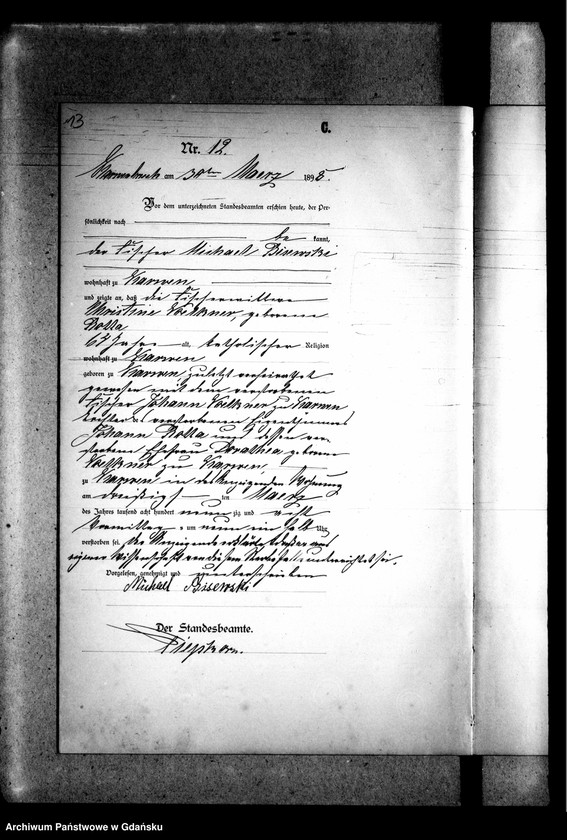 13
C.
Nr. 12.
am 30ten Maerz 1898.
Vor dem unterzeichneten Standesbeamten erschien heute, der Per-
sönlichkeit nach
be kannt,
der Fischer Michael Bisewski
wohnhaft zu Karwen,
und zeigte an, daß die Fischerwittwe
Christine Voelkner, geborene
Rotta
64 Jahre alt, katholischer Religion
wohnhaft zu Karwen
geboren zu Karwen, zuletzt verheirathet
gewesen mit dem verstorbenen
Fischer Johann Voelkner zu Karwen
Tochter des verstorbenen Eigenthümers
Johann Rotta und dessen ver-
storbene Ehefrau Dorothea geborene
Voelkner zu Karwen,
zu Karwen in des Anzeigenden Wohnung
am dreißigsten Maerz
des Jahres tausend acht hundert neunzig und acht
Vormittags um neun ein halb Uhr
verstorben sei. Der Anzeigende erklärte, daß er aus
eigener Wissenschaft von diesem Sterbefall unterrichtet sei.
Vorgelesen, genehmigt und unterschrieben
Michael Bisewski
Der Standesbeamte.
Archiwum Państwowe w Gdańsku